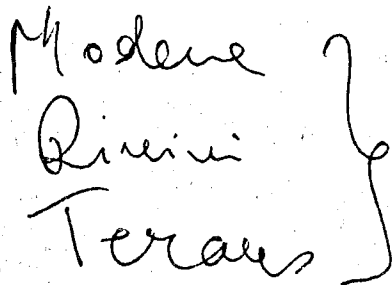 Modena
Rimini
Teramo